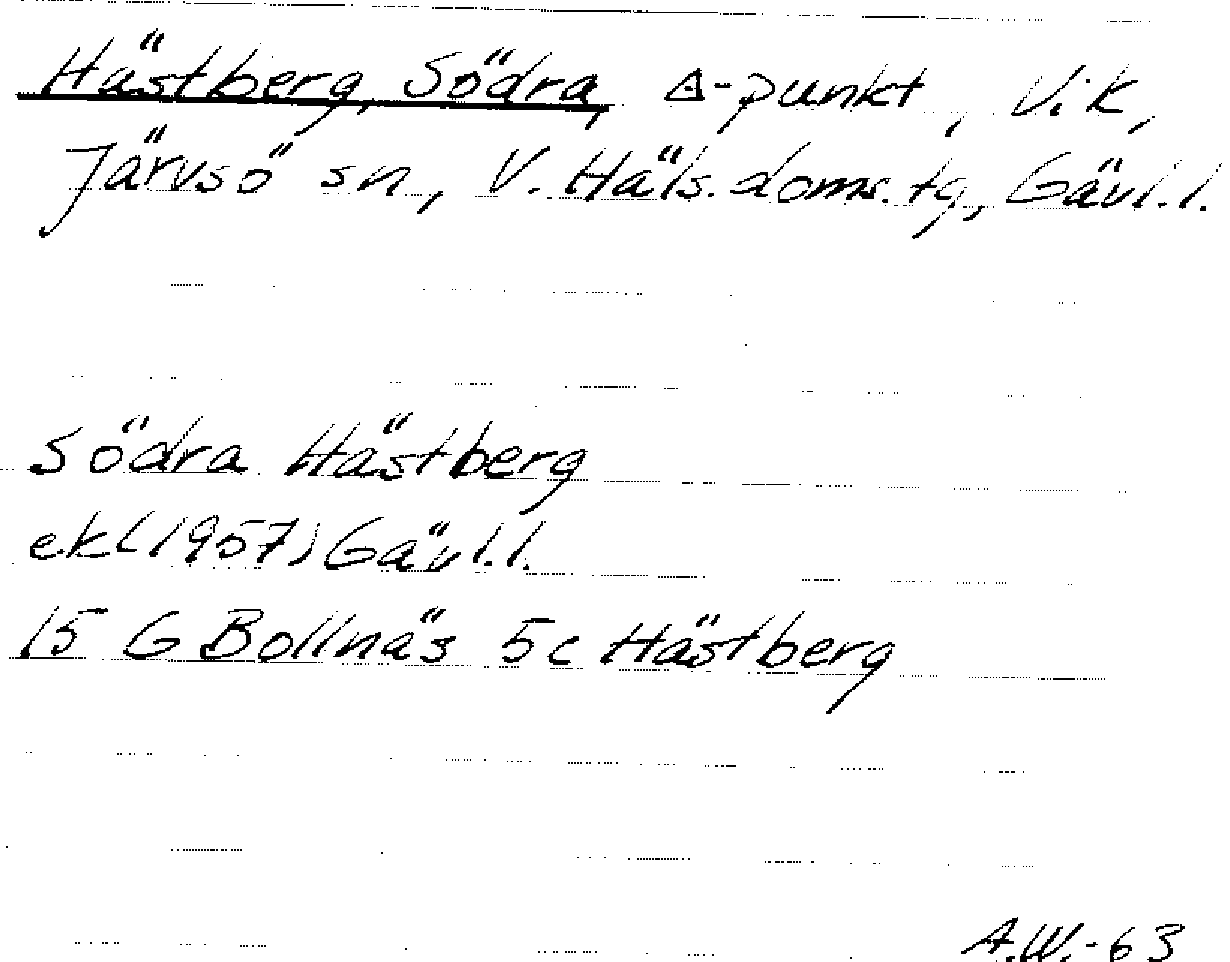 Hästberg, Södra, △-punkt, Vik,
Järvsö sn, V. Häls. doms. tg, Gävl. l.
Södra Hästberg
ek (1957) Gävl. l.
15 G Bollnäs 5c Hästberg
A.W.-63